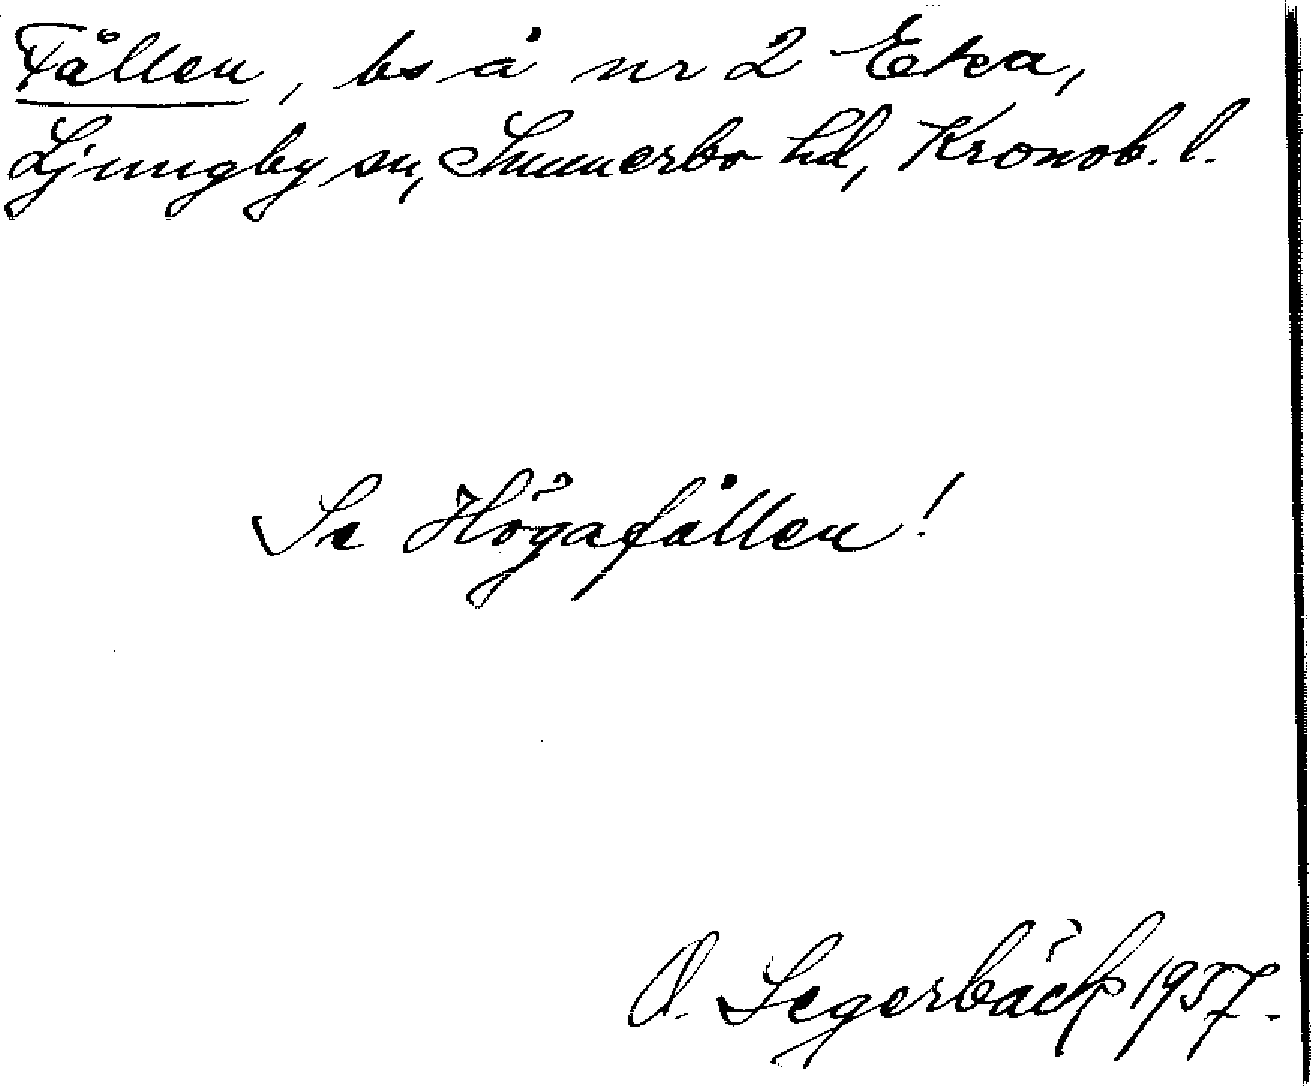 Fållen, bs å nr 2 Eka,
Ljungby sn, Sunnerbo hd, Kronob. l.
Se Högafållen!
O. Segerbäck 1957.